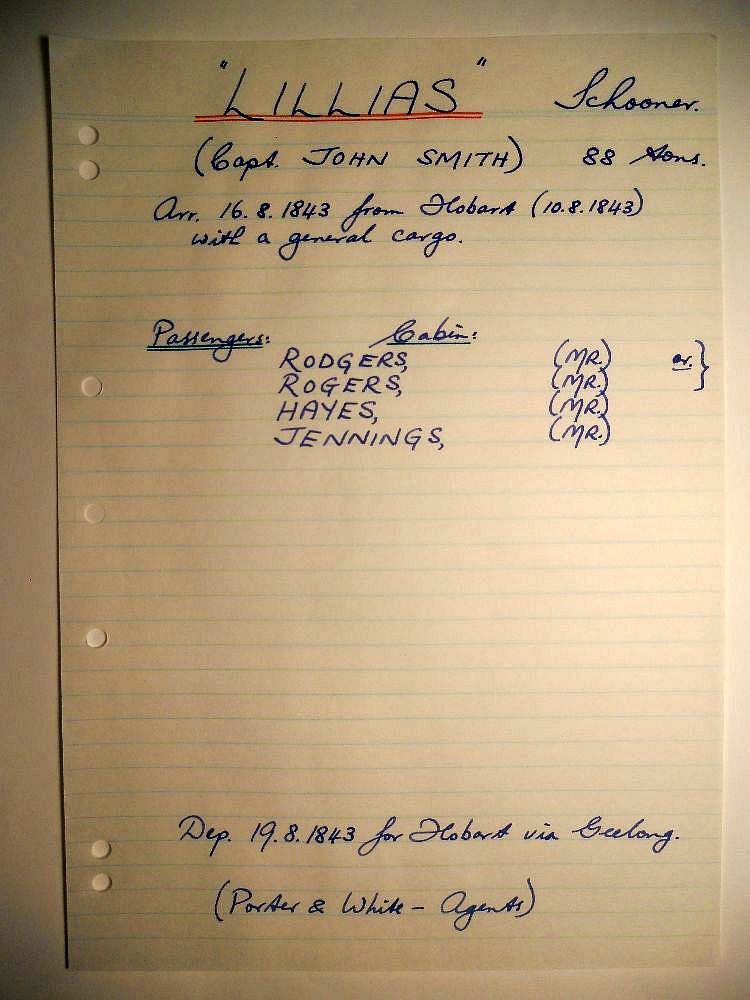 "LILLIAS" Schooner.
(Capt. JOHN SMITH) 88 tons.
Arr. 16.8.1843 from Hobart (10.8.1843)
with a general cargo.
Passengers: Cabin:
RODGERS, (MR.) or. }
ROGERS, (MR.)
HAYES, (MR.)
JENNINGS, (MR.)
Dep. 19.8.1843 for Hobart via Geelong.
(Porter & White - Agents)